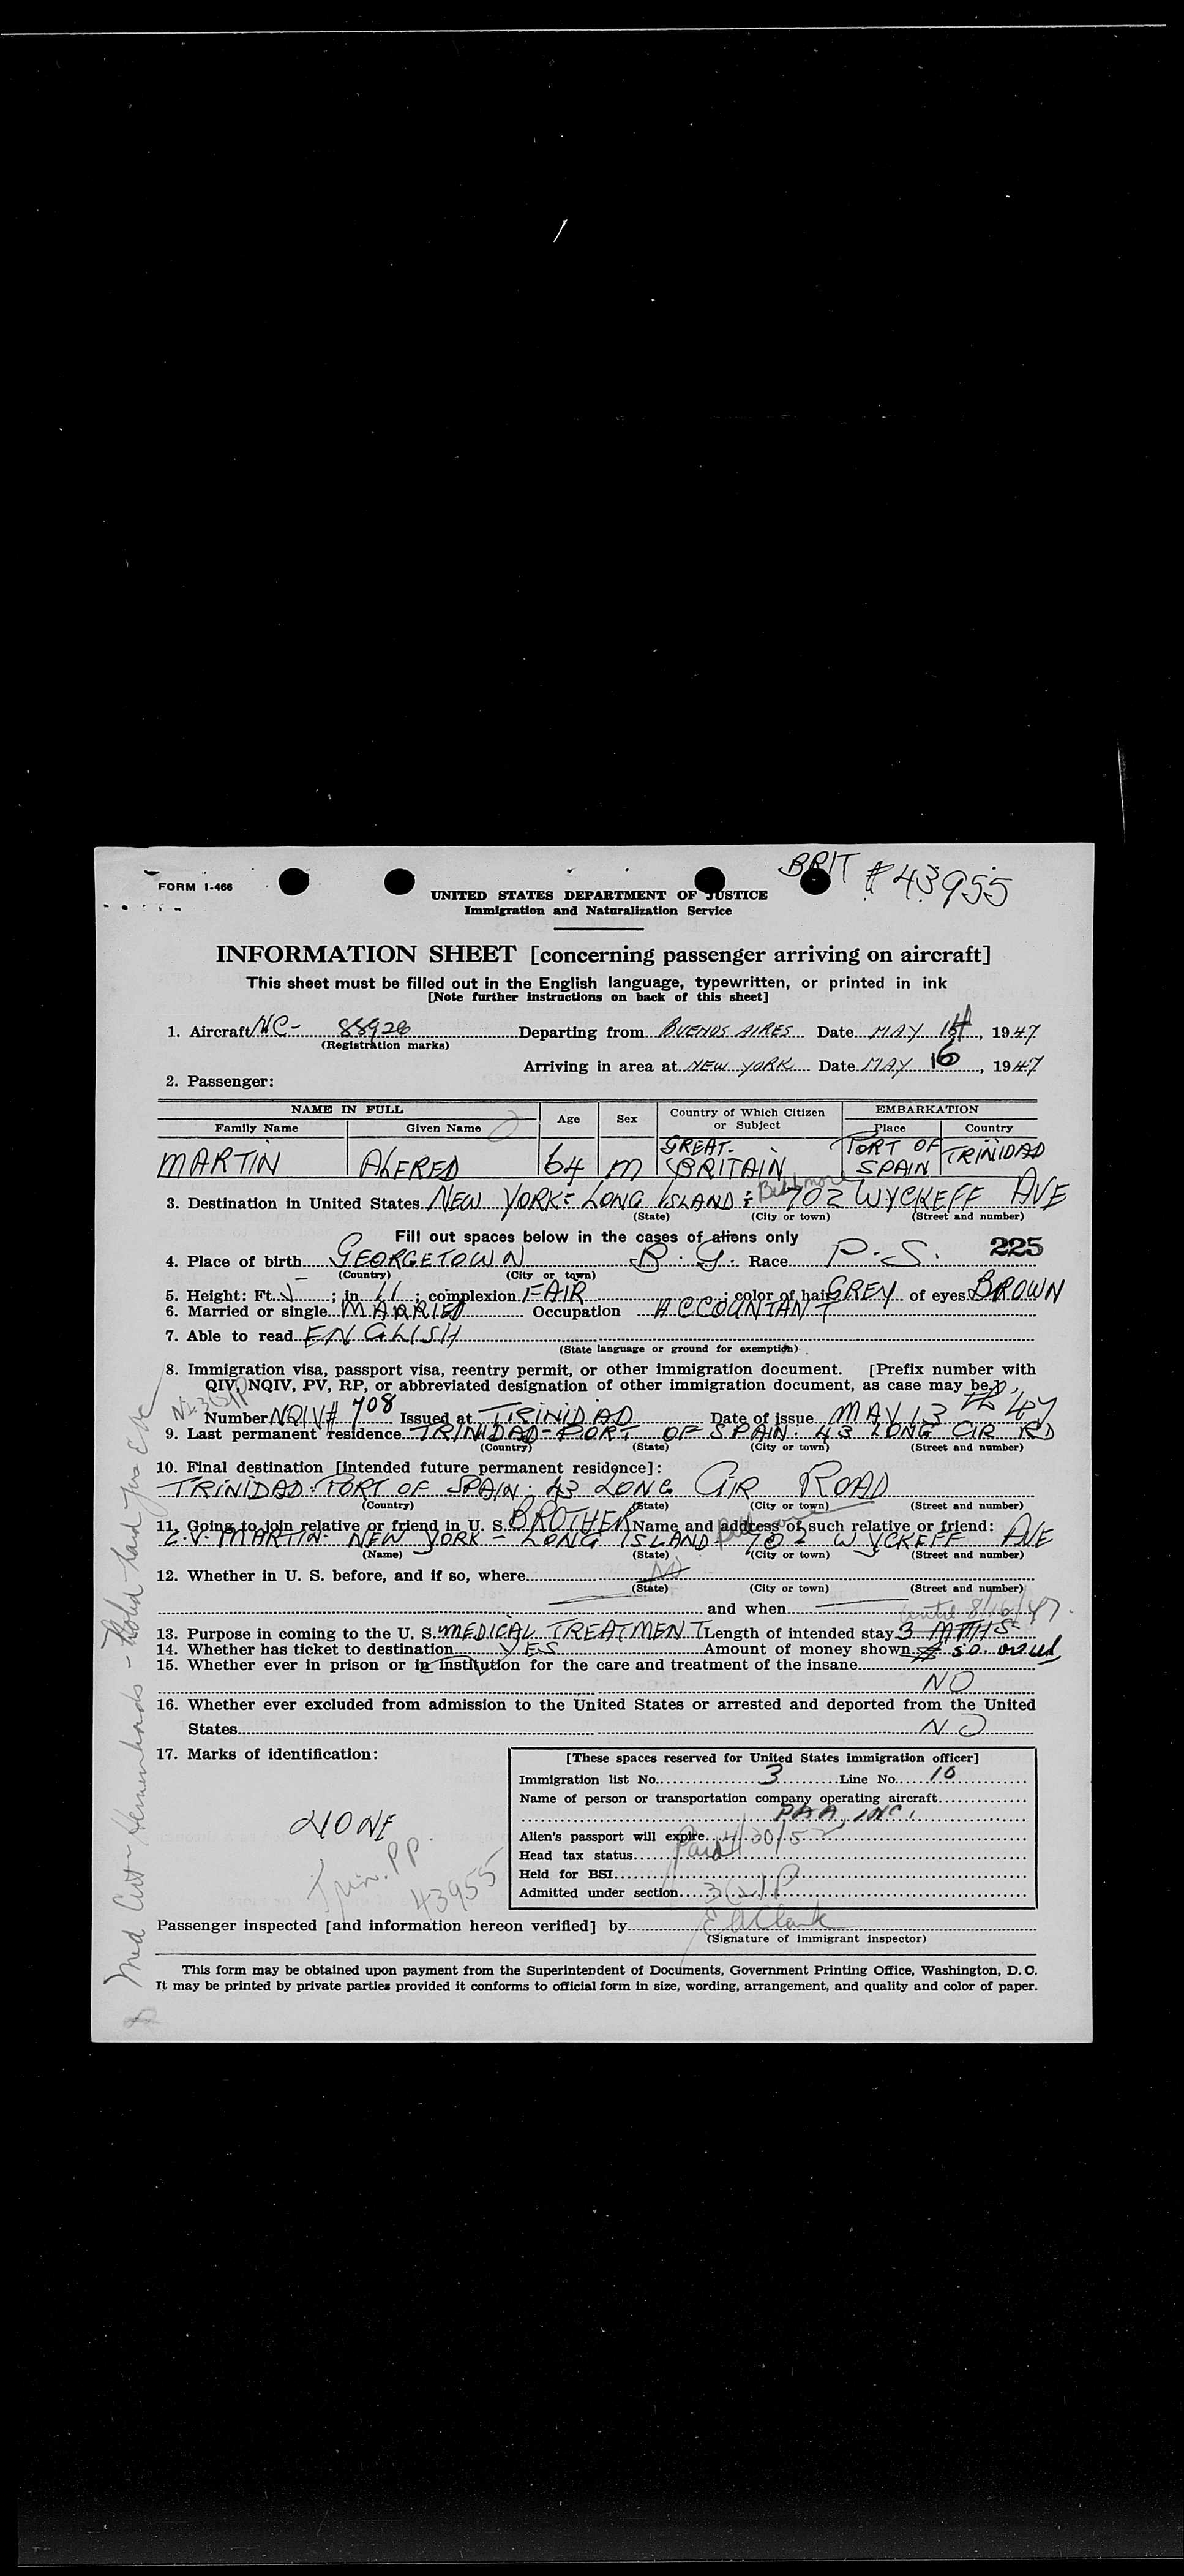 BRIT #43955
FORM I-466
UNITED STATES DEPARTMENT OF JUSTICE
Immigration and Naturalization Service
INFORMATION SHEET [concerning passenger arriving on aircraft]
This sheet must be filled out in the English language, typewritten, or printed in ink
[Note further instructions on back of this sheet]
1. Aircraft NC- 88926 Departing from BUENOS AIRES Date MAY, 1947
(Registration marks)
Arriving in area at NEW YORK Date MAY 16, 1947
2. Passenger:
NAME IN FULL Age Sex Country of Which Citizen or Subject EMBARKATION
Family Name Given Name Place Country
MARTIN ALFRED 64 M GREAT-BRITAIN PORT OF SPAIN TRINIDAD
3. Destination in United States NEW YORK = LONG ISLAND: 702 WYCKEFF AVE
(State) (City or town) (Street and number)
Fill out spaces below in the cases of aliens only
225
4. Place of birth GEORGETOWN B. G. Race P. S.
(Country) (City or town)
5. Height: Ft. 5; in. 11; complexion FAIR; color of hair GREY of eyes BROWN
6. Married or single MARRIED Occupation ACCOUNTANT
7. Able to read ENGLISH
(State language or ground for exemption)
8. Immigration visa, passport visa, reentry permit, or other immigration document. [Prefix number with
QIV, NQIV, PV, RP, or abbreviated designation of other immigration document, as case may be.]
Number NQIV# 708 Issued at TRINIDAD Date of issue MAY 13TH 47
9. Last permanent residence TRINIDAD - PORT OF SPAIN. 43 LONG CIR RD
(Country) (State) (City or town) (Street and number)
10. Final destination [intended future permanent residence]:
TRINIDAD: PORT OF SPAIN: 43 LONG CIR ROAD
(Country) (State) (City or town) (Street and number)
11. Going to join relative or friend in U. S. BROTHER Name and address of such relative or friend:
MARTIN - NEW YORK - LONG ISLAND 702 WYCKEFF AVE
(Name) (State) (City or town) (Street and number)
12. Whether in U. S. before, and if so, where NO
(State) (City or town) (Street and number)
and when until 8/16/47.
13. Purpose in coming to the U. S. MEDICAL TREATMENT Length of intended stay 3 MTHS
14. Whether has ticket to destination YES Amount of money shown $ 50.00
15. Whether ever in prison or in institution for the care and treatment of the insane
NO
16. Whether ever excluded from admission to the United States or arrested and deported from the United
States NO
17. Marks of identification:
NONE
Trin. PP
43955
[These spaces reserved for United States immigration officer]
Immigration list No. 3 Line No. 10
Name of person or transportation company operating aircraft
PAA, INC.
Alien's passport will expire 4/30/52
Head tax status Paid
Held for BSI
Admitted under section 3(2)P
Passenger inspected [and information hereon verified] by E A Clark
(Signature of immigrant inspector)
This form may be obtained upon payment from the Superintendent of Documents, Government Printing Office, Washington, D. C.
It may be printed by private parties provided it conforms to official form in size, wording, arrangement, and quality and color of paper.